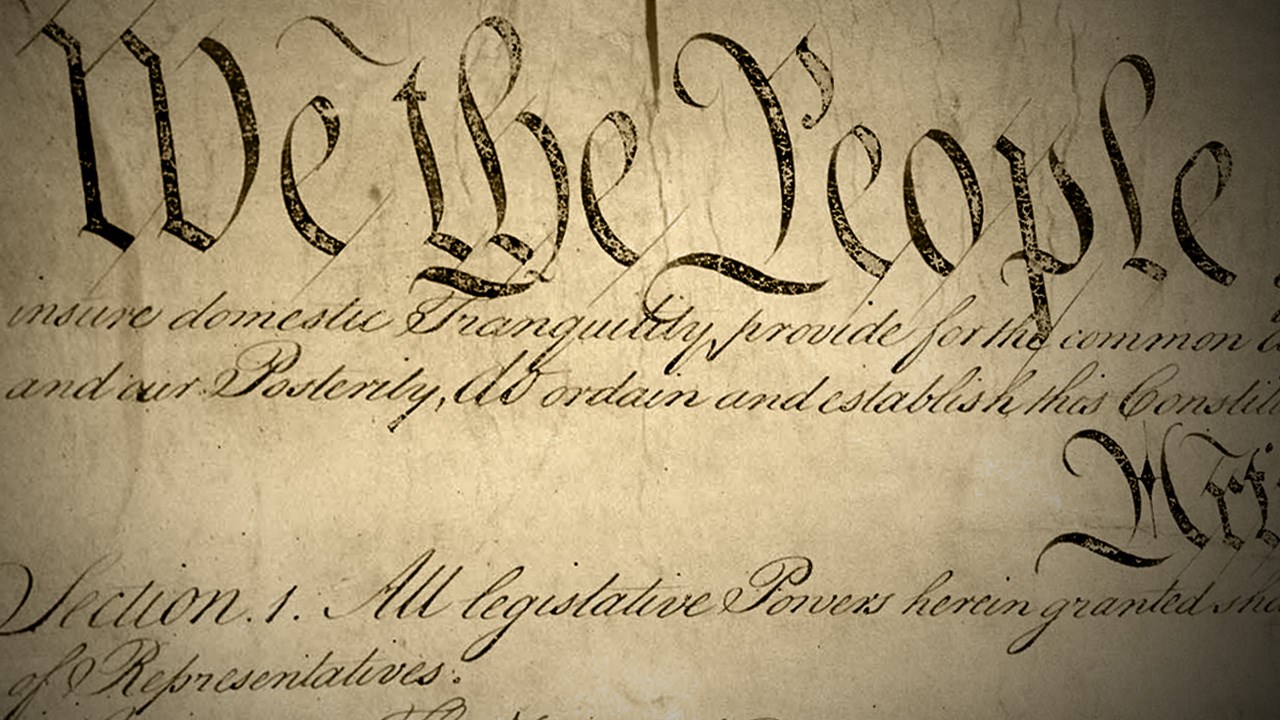 We the People
insure domestic Tranquility, provide for the common
and our Posterity, do ordain and establish this Constit
Section. 1. All legislative Powers herein granted sh
of Representatives.